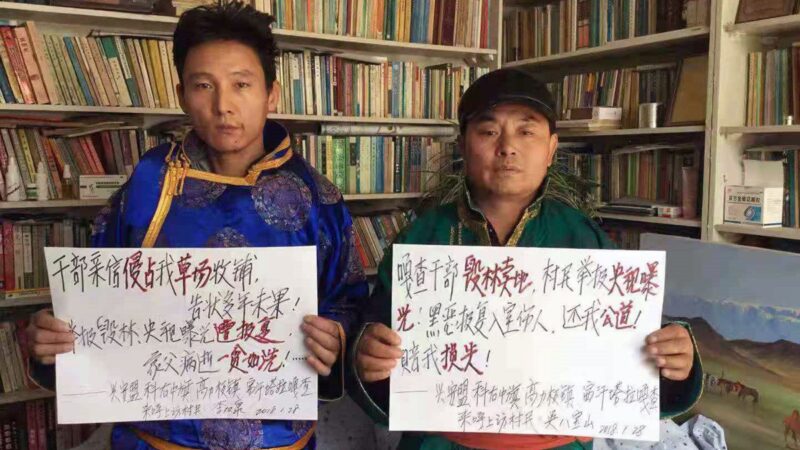 干部亲信侵占我草场收铺,
告状多年未果!
举报毁林,央视曝光遭报复,
家父病逝一贫如洗!……
——兴安盟科右中旗高力板镇
来呼上访村民
2018.1.28
嘎查干部毁林卖地,村民举报央视曝
光!黑恶报复入室伤人,还我公道!
赔我损失!
——兴安盟科右中旗高力板镇
来呼上访村民 吴八宝山 2018.1.28